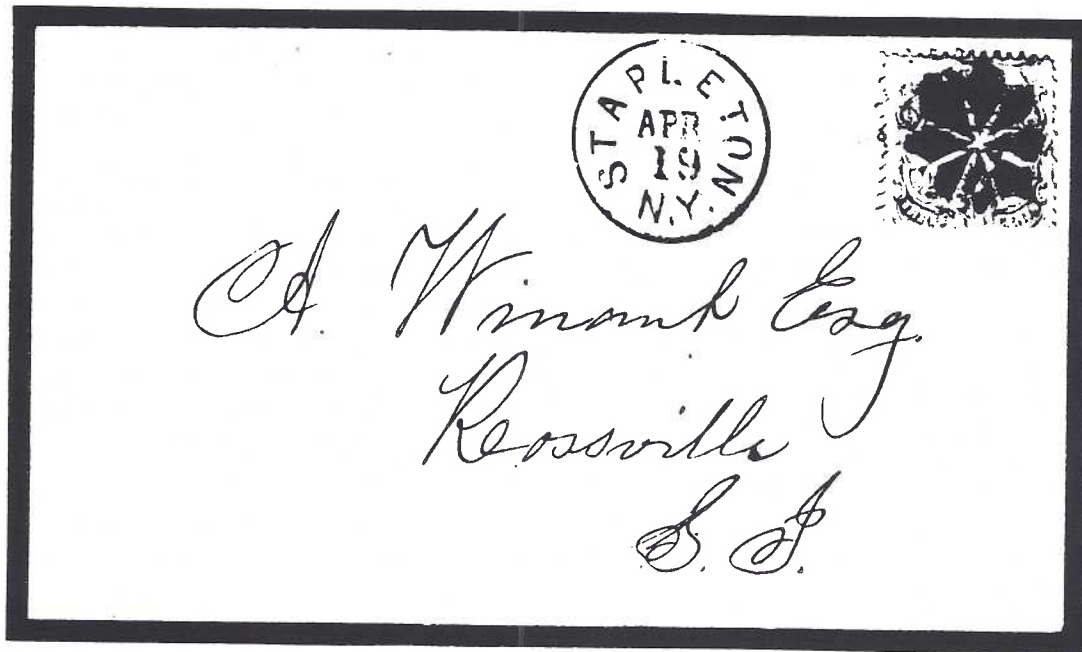 STAPLETON
APR
19
N.Y.
A. Winant Esq.
Rossville
S. I.